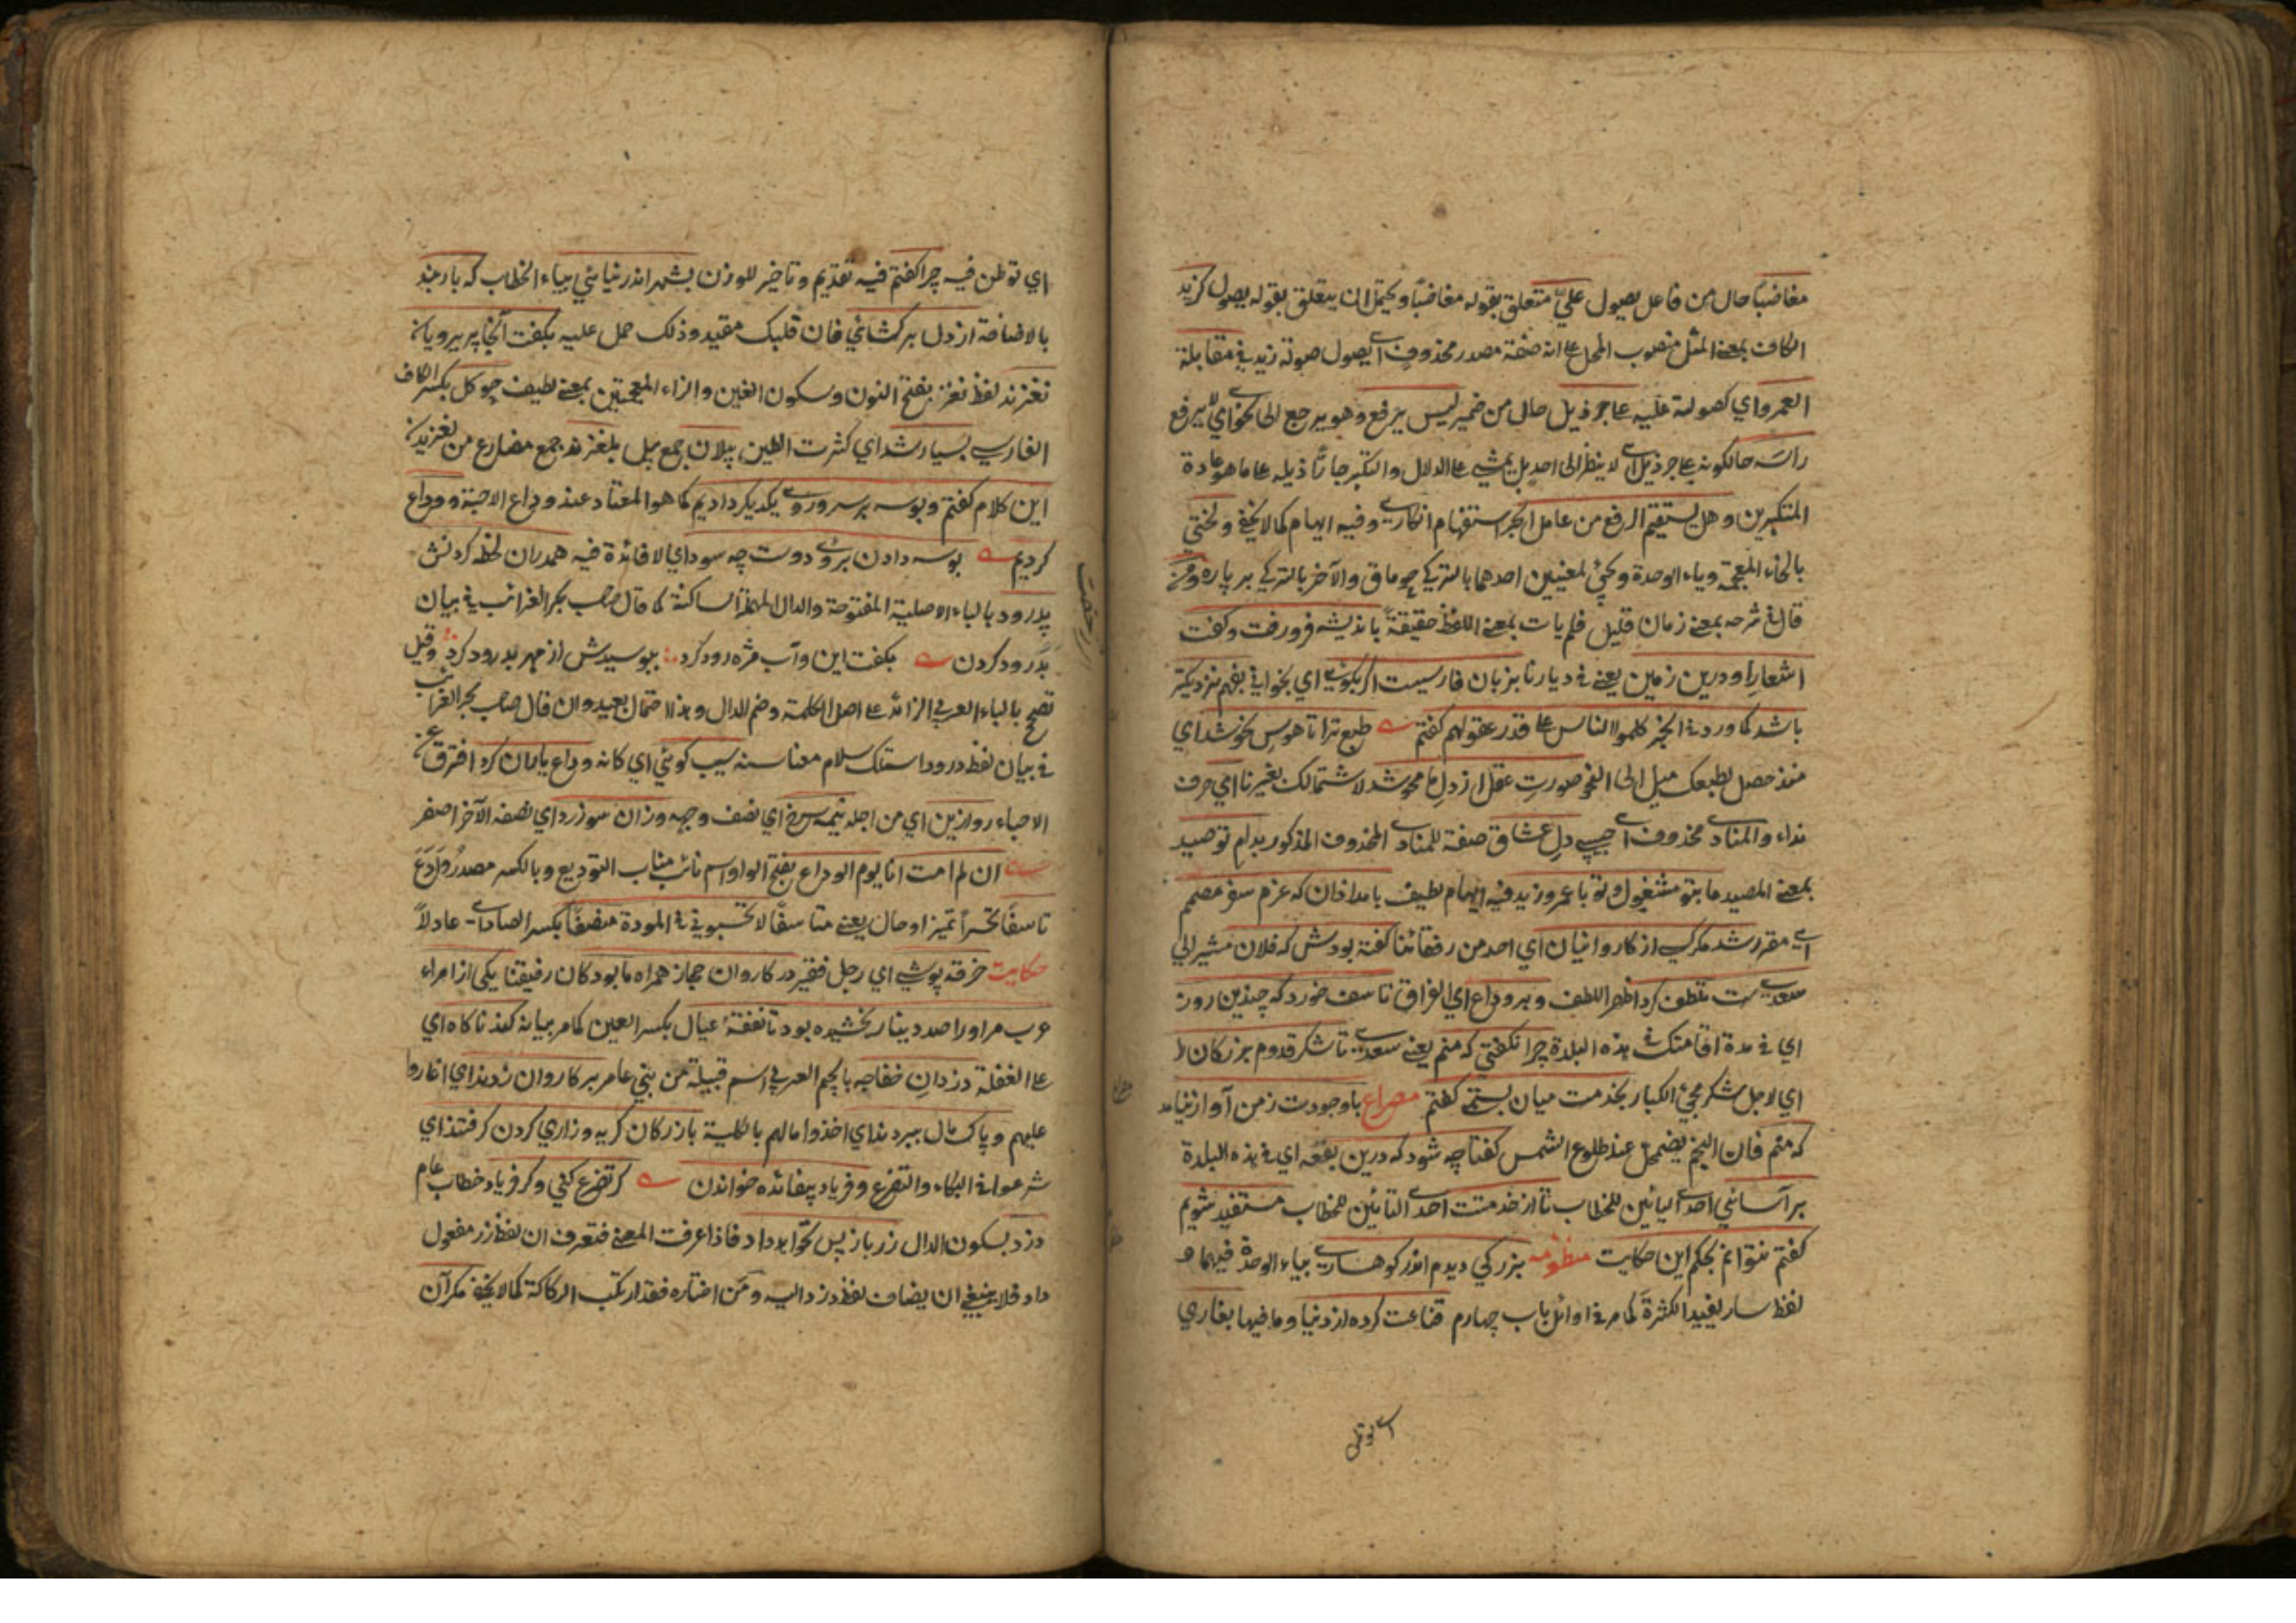 مغاضبًا حال من فاعل يصول عليّ متعلق بقوله مغاضبًا ويحتمل ان يتعلق بقوله يصول كزيد
الكاف بمعنى المثل منصوب المحل على انه صفة مصدر محذوف اي يصول صولة زيد في مقابلة
العمرو اي كصولة عليه على جر ذيل حال من ضمير ليس يرفع وهو يرجع الى نحوي اي لا يرفع
راسه حالكونه على جر ذيل اي لا ينظر الى احد بل يمشي على الدلال والتكبر جارًّا ذيله على ما هو عادة
المتكبرين وهل يستقيم الرفع من عامل الجر استفهام انكاري وفيه ايهام كما لا يخفى ولختي
بالخاء المعجمة وياء الوحدة ويجئ لمعنيين احدهما بالتركي چوماق والآخر بالتركي بر پاره ومن
قال في شرحه بمعنى زمان قليل فلم يات بمعنى اللفظ حقيقةً بانديشه فرو رفت وكفت
اشعار او درين زمين يعني في ديارنا بزبان فارسيست اكر بكوني اي بخواني بفهم نزديكتر
باشد كما ورد في الخبر كلموا الناس على قدر عقولهم كفتم طبع ترا تا هوس نحو شد اي
منذ حصل لطبعك ميل الى النحو صورت عقل از دل ما محو شد لاشتمالك بغيرنا اي حرف
نداء والمنادى محذوف اي حبيبي دل عشاق صفة للمنادى المحذوف المذكور بدام تو صيد
بمعنى المصيد ما بتو مشغول وتو با عمرو وزيد فيه ايهام لطيف بامدادان كه عزم سفر مصمم
اي مقرر شد مكر كسي از كاروانيان اي احد من رفقائنا كفته بودش كه فلان مشير الي
سعديست تلطف كرد اظهر اللطف وبر وداع اي الفراق تاسف خورد كه چندين روز
اي في مدة اقامتك في هذه البلدة چرا نكفتي كه منم يعني سعدي تا شكر قدوم بزركان را
اي لاجل شكر مجئ الكبار بخدمت ميان بستمي كفتم مصراع با وجودت ز من آواز نيامد
كه منم فان النجم يضمحل عند طلوع الشمس كفتا چه شود كه درين بقعه اي في هذه البلدة
بر آسائي احدى اليائين للخطاب تا از خدمتت احدى التائين للخطاب مستفيد شويم
كفتم نتوانم بحكم اين حكايت منظومه بزركي ديدم اندر كوهساري بياء الوحدة فيهما و
لفظ سار يفيد الكثرة كما مر في اوائل باب چهارم قناعت كرده از دنيا وما فيها بغاري
اي توطن فيه چرا كفتم فيه تقديم وتاخير للوزن بشهر اندر نيائي بياء الخطاب كه بار بند
بالاضافة از دل بر كشائي فان قلبك مقيد وذلك حمل عليه بكفت آنجا پريرويان
نغزند لفظ نغز بفتح النون وسكون الغين والزاء المعجمتين بمعنى لطيف چو كل بكسر الكاف
الفارسي بسيار شد اي كثرت الطين پيلان جمع پيل بلغزند جمع مضارع من لغزيدن
اين كلام كفتم وبوسه بر سر وروي يكديكر داديم كما هو المعتاد عند وداع الاحبة ووداع
كرديم بوسه دادن بروي دوست چه سود اي لا فائدة فيه همدران لحظه كردنش
پدرود بالباء الاصلية المفتوحة والدال المهملة الساكنة كما قال صاحب بحر الغرائب في بيان
بدرود كردن بكفت اين وآب مژه رود كرد ببوسيدش از مهر بدرود كرد وقيل
تصحيح بالباء العربي الزائد على اصل الكلمة وضم الدال وهذا احتمال بعيد وان قال صاحب بحر الغرائب
في بيان لفظ درود استلك سلام معناسنه سيب كوئي اي كانه وداع ياران كرد افترق عن
الاحباء روازين اي من اجله نيمه سرخ اي نصف وجهه وزان سو زرد اي نصفه الآخر اصفر
ان لم امت انا يوم الوداع بفتح الواو اسم نائب مناب التوديع وبالكسر مصدر وَادَعَ
تاسفًا تحسرًا تميز او حال يعني متاسفًا لا تحسبوني في المودة منصفًا بكسر الصاد اي عادلاً
حكايت خرقه پوشي اي رجل فقير در كاروان حجاز همراه ما بود كان رفيقنا يكى از امراء
عرب مر اورا صد دينار بخشيده بود تا نفقۀ عيال بكسر العين كما مر بيانه كند ناكاه اي
على الغفلة دزدان خفاجه بالجيم العربي اسم قبيلة من بني عامر بر كاروان زدند اي اغاروا
عليهم وپاك مال ببردند اي اخذوا مالهم بالكلية بازركان كريه وزاري كردن كرفتند اي
شرعوا في البكاء والتضرع وفرياد بيفائده خواندن كر تضرع كني وكر فرياد خطاب عام
دزد بسكون الدال زر باز پس نخواهد داد فاذا عرفت المعنى فتعرف ان لفظ زر مفعول
داد فلا ينبغي ان يضاف لفظ دزد اليه ومَن اختاره فقد ارتكب الركاكة كما لا يخفى مكر آن